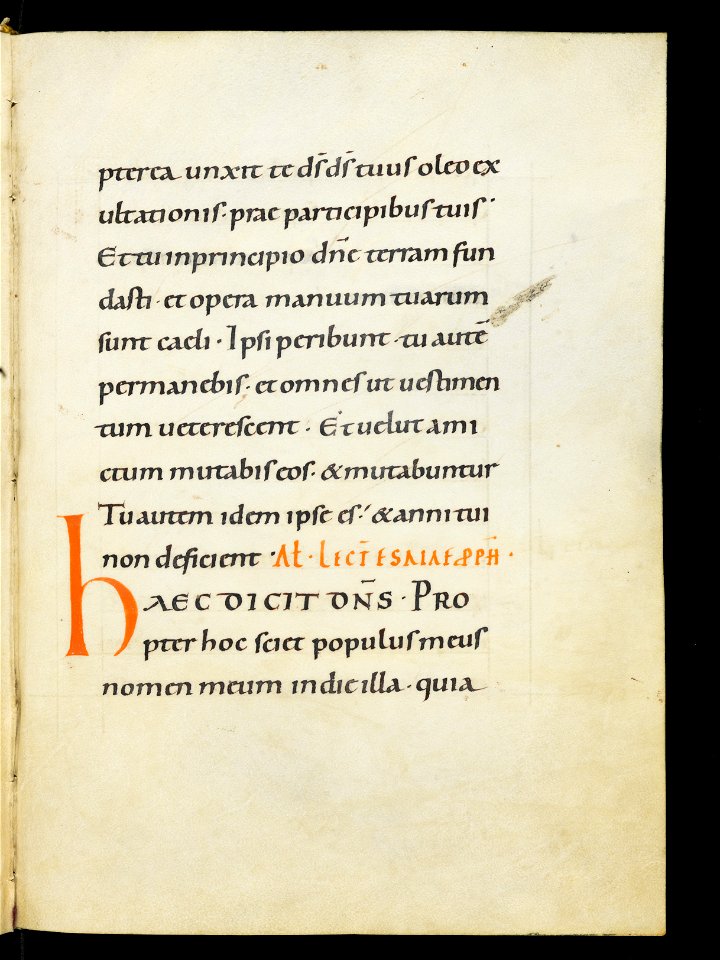 pterea unxit te d̄s d̄s tuus oleo ex
ultationis · prae participibus tuis ·
Et tu in principio dn̄e terram fun
dasti · et opera manuum tuarum
sunt caeli · Ipsi peribunt · tu autē
permanebis · et omnes ut uestimen
tum ueterescent · Et uelut ami
ctum mutabis eos · & mutabuntur
Tu autem idem ipse es · & anni tui
non deficient · Lect̄ esaiae pph̄ ·
HAEC DICIT DN̄S · PRO
pter hoc sciet populus meus
nomen meum in die illa · quia